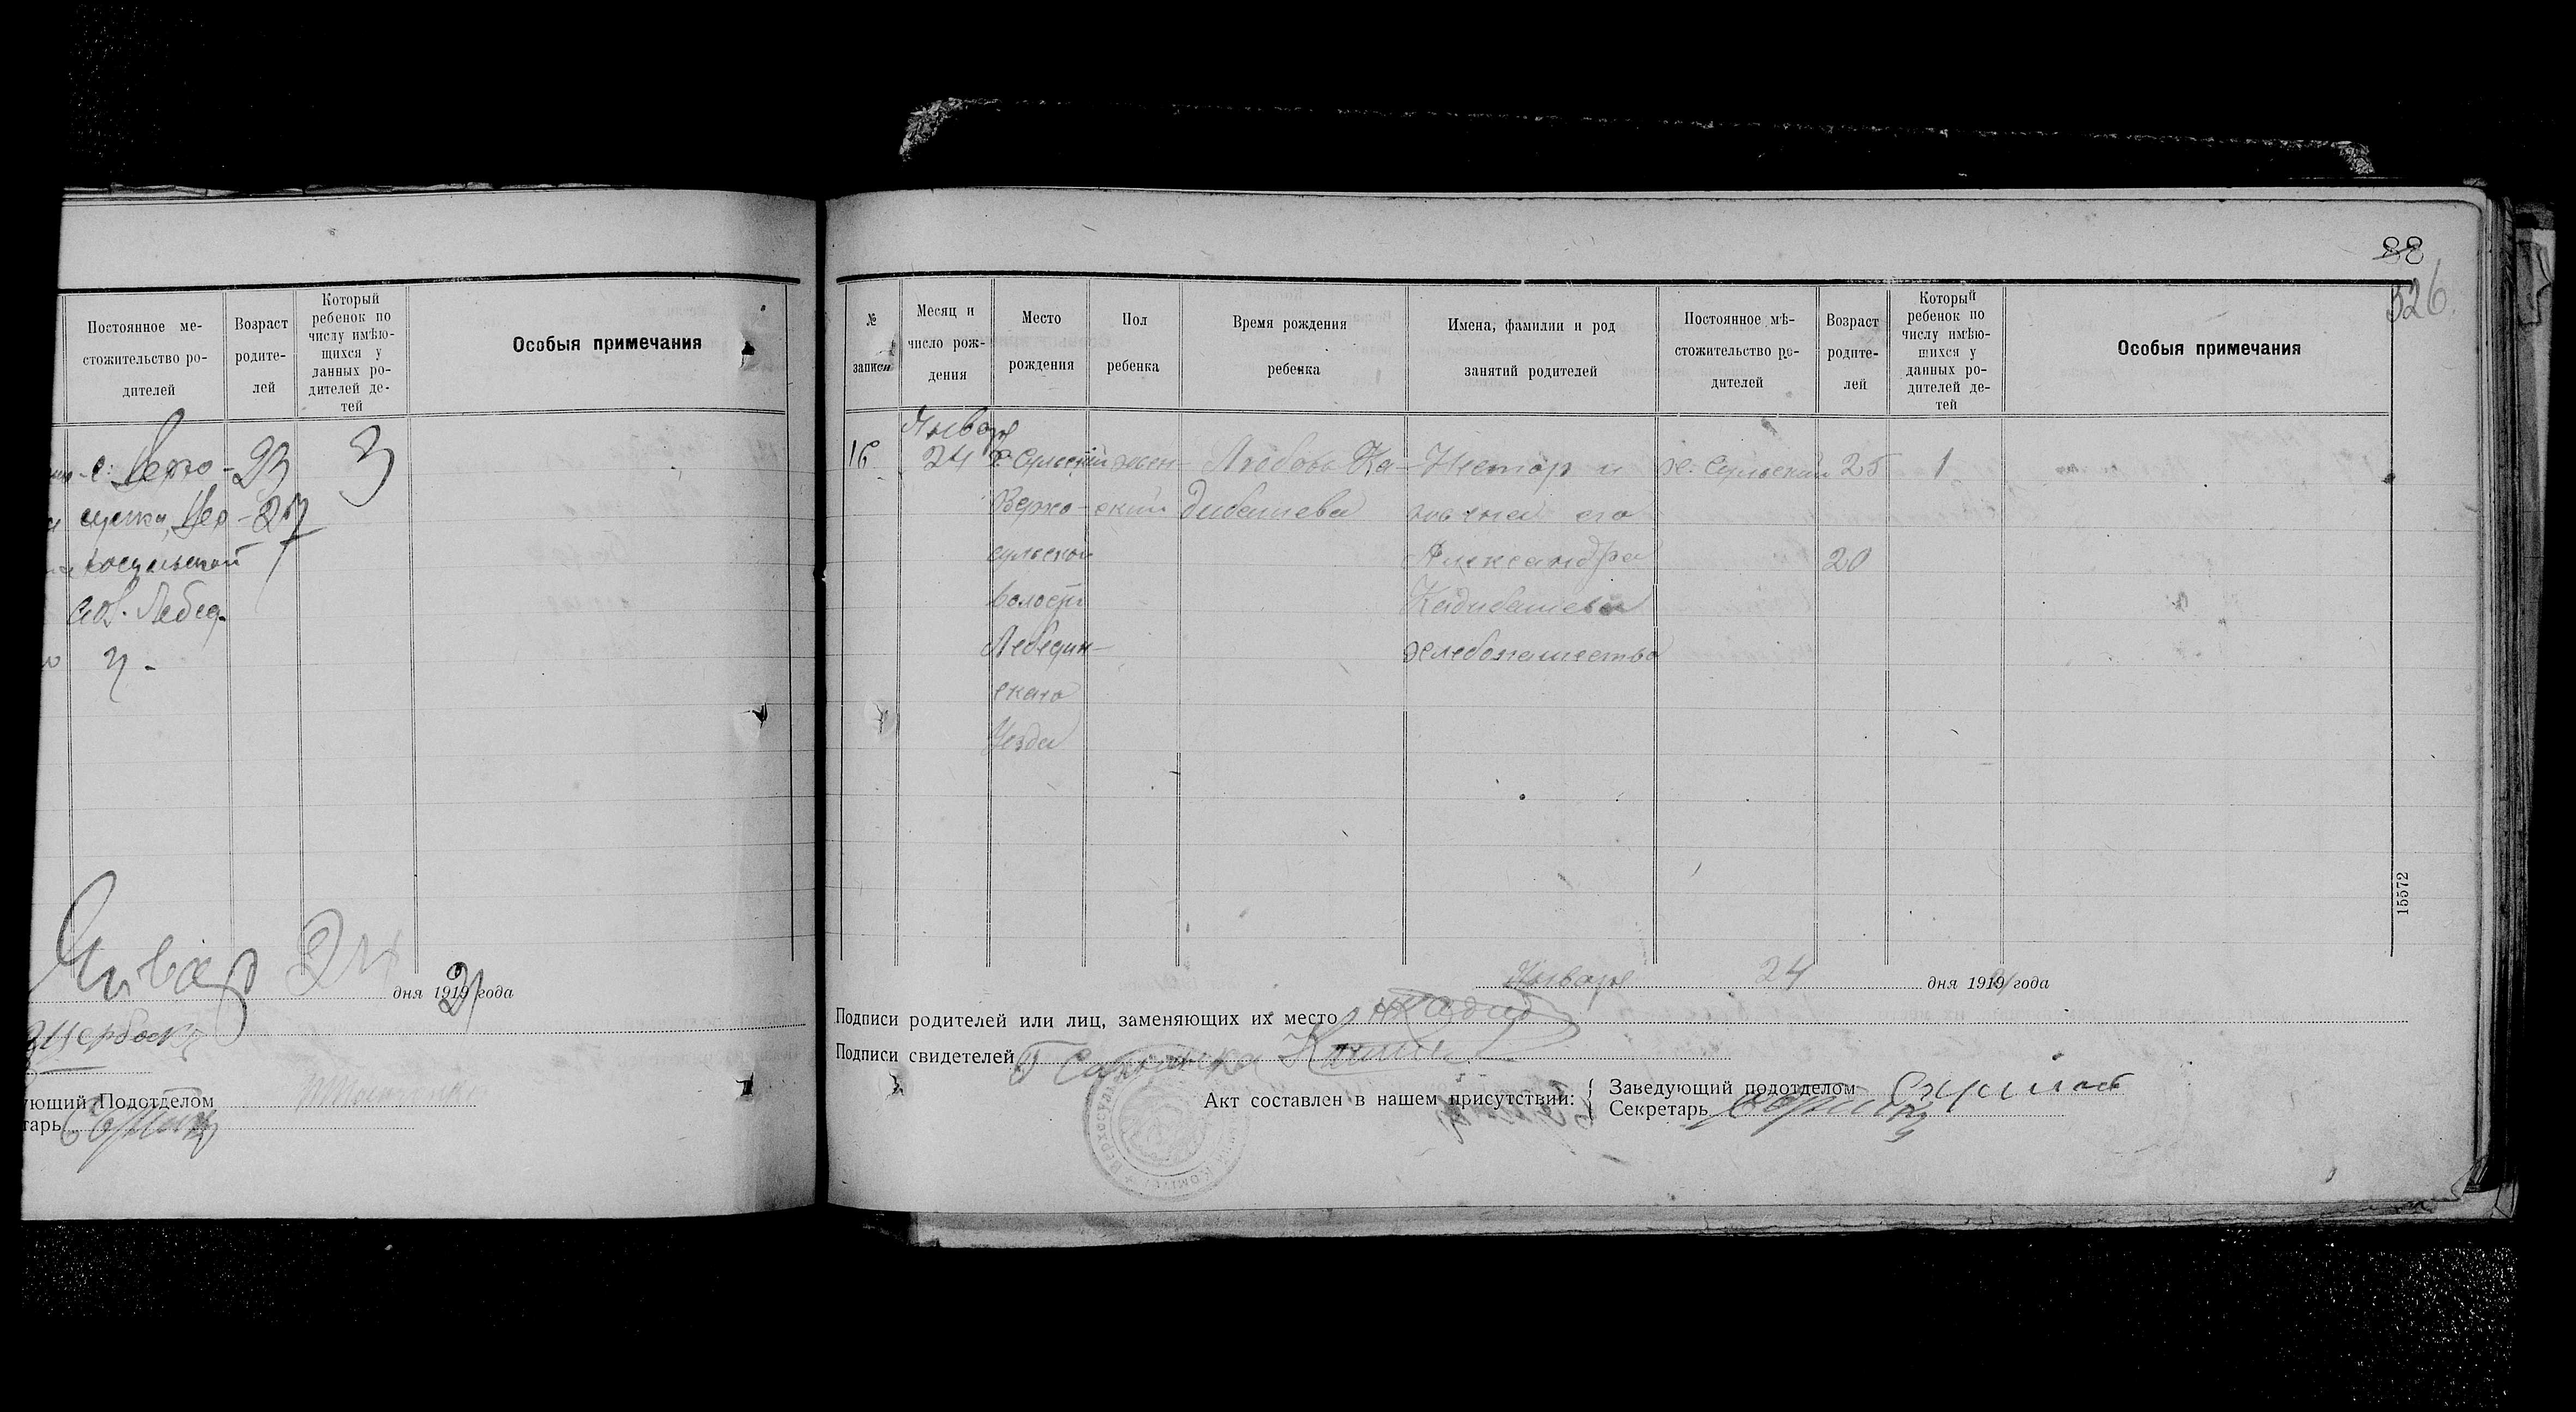 Постоянное ме-
стожительство ро-
дителей
Возраст
родите-
лей
Который
ребенок по
числу имѣю-
щихся у
данных ро-
дителей де-
тей
Особыя примечания
с. Верхо-
23
3
27
Лебед.
у-
Январ 24
дня 1919 21 года
ующий Подотделом
тарь
88
326.
№
записи
Месяц и
число рож-
дения
Место
рождения
Пол
ребенка
Время рождения
ребенка
Имена, фамилии и род
занятий родителей
Постоянное мѣ-
стожительство ро-
дителей
Возраст
родите-
лей
Который
ребенок по
числу имѣю-
щихся у
данных ро-
дителей де-
тей
Особыя примечания
16
Январ
24
х. Сульский
Верхо-
сульской
волости
Лебедин-
скаго
Уезда
женс-
ский
Любовь Ка-
дибашева
Нестор и
жена его
Александра
Кадибашевы
хлебопашество
х. Сульский
25
20
1
Января 24 дня 1919 21 года
Подписи родителей или лиц, заменяющих их место
Подписи свидетелей
Акт составлен в нашем присутствии:
Заведующий подотделом
Секретарь
15572